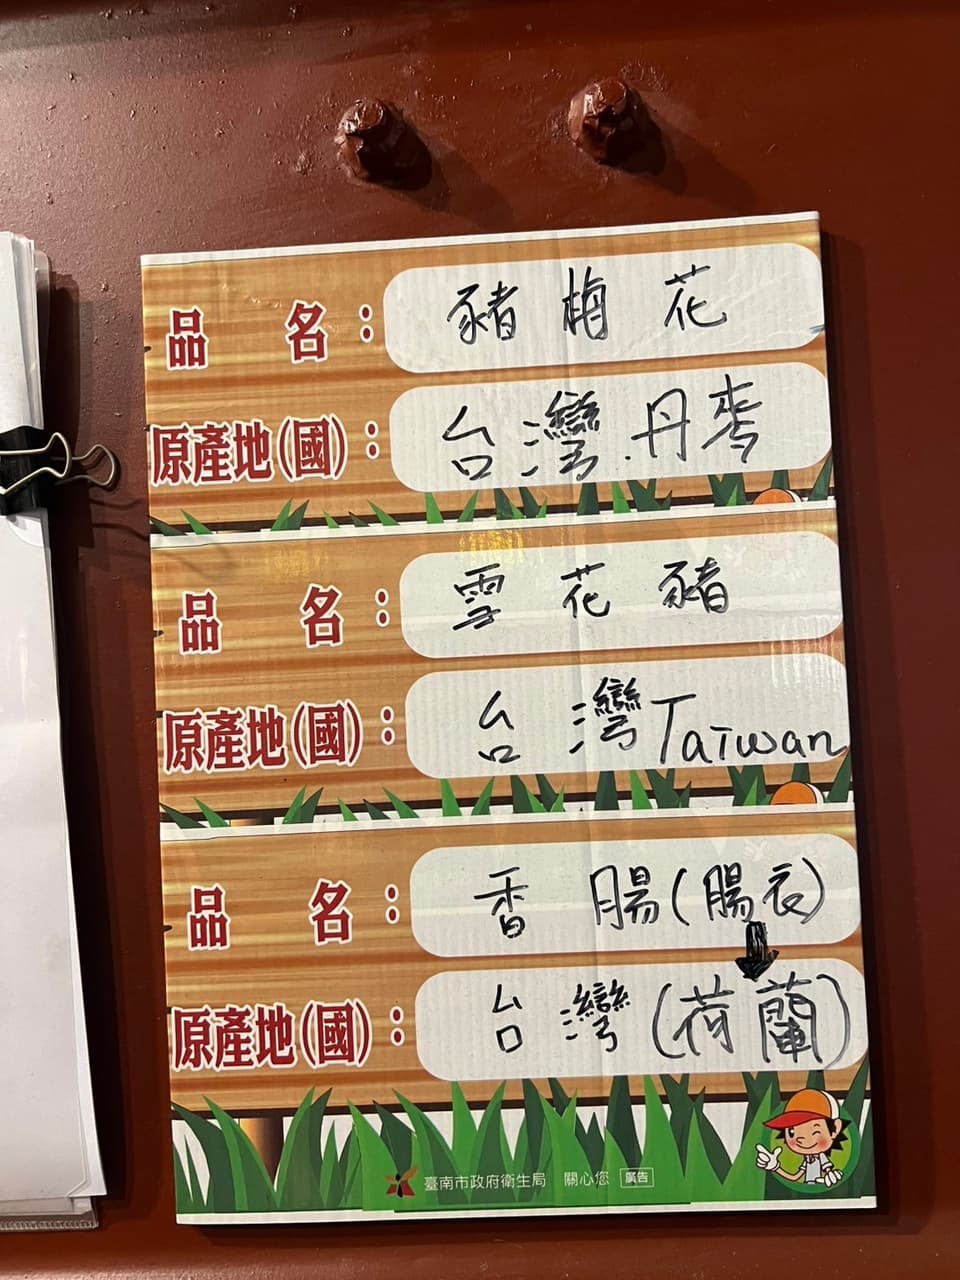 品 名：豬梅花
原產地(國)：台灣．丹麥
品 名：雪花豬
原產地(國)：台灣 Taiwan
品 名：香腸(腸衣)
原產地(國)：台灣(荷蘭)
臺南市政府衛生局 關心您 廣告